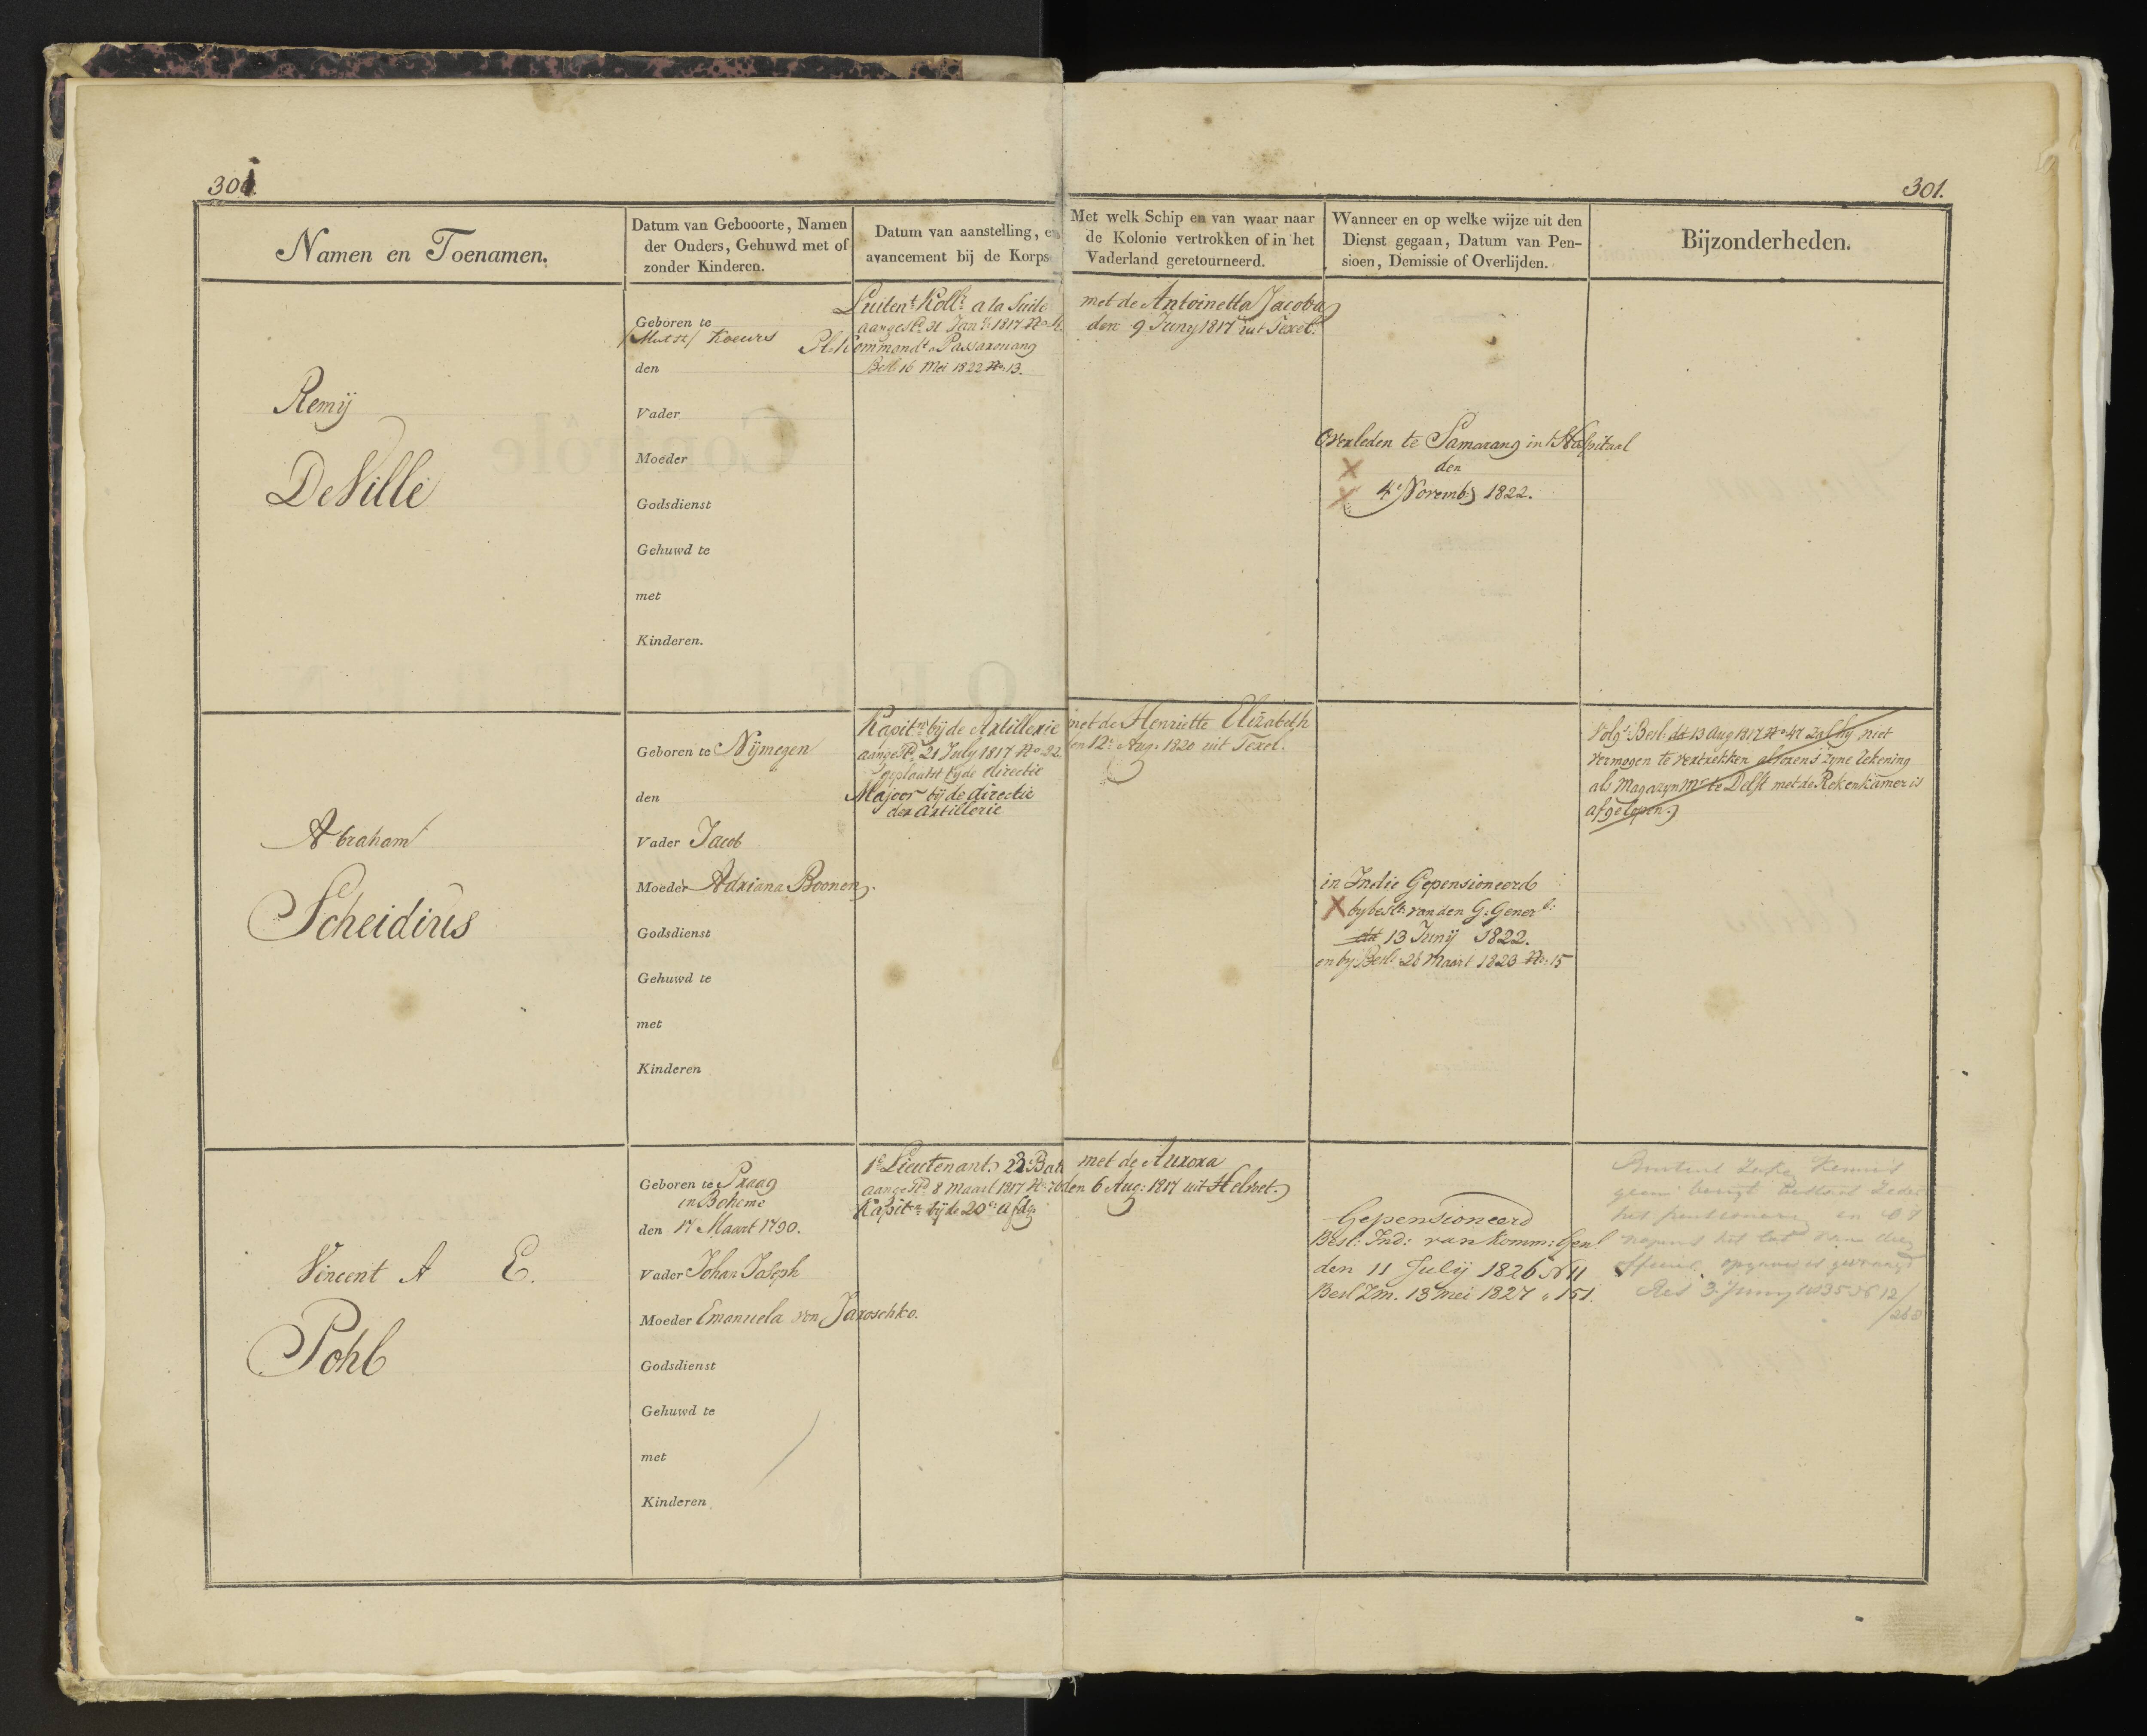 300.
301.
Namen en Toenamen.
Datum van Gebooorte, Namen
der Ouders, Gehuwd met of
zonder Kinderen.
Datum van aanstelling, en
avancement bij de Korps
Met welk Schip en van waar naar
de Kolonie vertrokken of in het
Vaderland geretourneerd.
Wanneer en op welke wijze uit den
Dienst gegaan, Datum van Pen-
sioen, Demissie of Overlijden.
Bijzonderheden.
Remij
De Ville
Geboren te
den
Vader
Moeder
Godsdienst
Gehuwd te
met
Kinderen.
Luitent. Koll. a la Suite
aangest. 31 Jan. 1817 No
Pl. Kommandt. Passaroeang
Besl. 16 Mei 1822 No. 13.
met de Antoinetta Jacoba
den 9 Juny 1817 uit Texel.
Overleden te Samarang in 't Hospitaal
den
4e Novemb. 1822.
Abraham
Scheidius
Geboren te Nijmegen
den
Vader Jacob
Moeder Adriana Boonen.
Godsdienst
Gehuwd te
met
Kinderen
Kapitn. bij de Artillerie
aangest. 21 July 1817 No. 22.
geplaatst bij de directie
Majoor bij de directie
der Artillerie
met de Henriette Elizabeth
den 12e Aug: 1820 uit Texel.
in Indie Gepensioneerd
by beslt. van den G: Generl:
dd 13 Junij 1822.
en by Besl. 26 Maart 1823 No. 15
Volgs. Besl. dd 13 Aug 1817 No. 47 zal hy niet
vermogen te vertrekken alvorens zyne rekening
als Magazynmr te Delft met de Rekenkamer is
afgelopen.
Vincent A E.
Pohl
Geboren te Praag
in Boheme
den 17 Maart 1790.
Vader Johan Joseph
Moeder Emanuela von Jaroschko.
Godsdienst
Gehuwd te
met
Kinderen
1e Lieutenant. 23 Bat
aangest. 8 Maart 1817 No. 76
Kapitn. bij de 20e afdg
met de Aurora
den 6 Aug: 1817 uit Helvoet.
Gepensioneerd
Besl: Ind: van Komm: Genl
den 11 Julij 1826 N 11
Besl Zm. 13 mei 1827 " 151.
Res 3 Juny 1835 No 12/